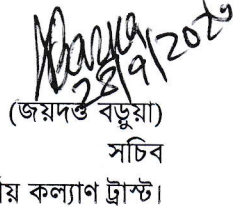 28/9/2020
(জয়দত্ত বড়ুয়া)
সচিব
য় কল্যাণ ট্রাস্ট।